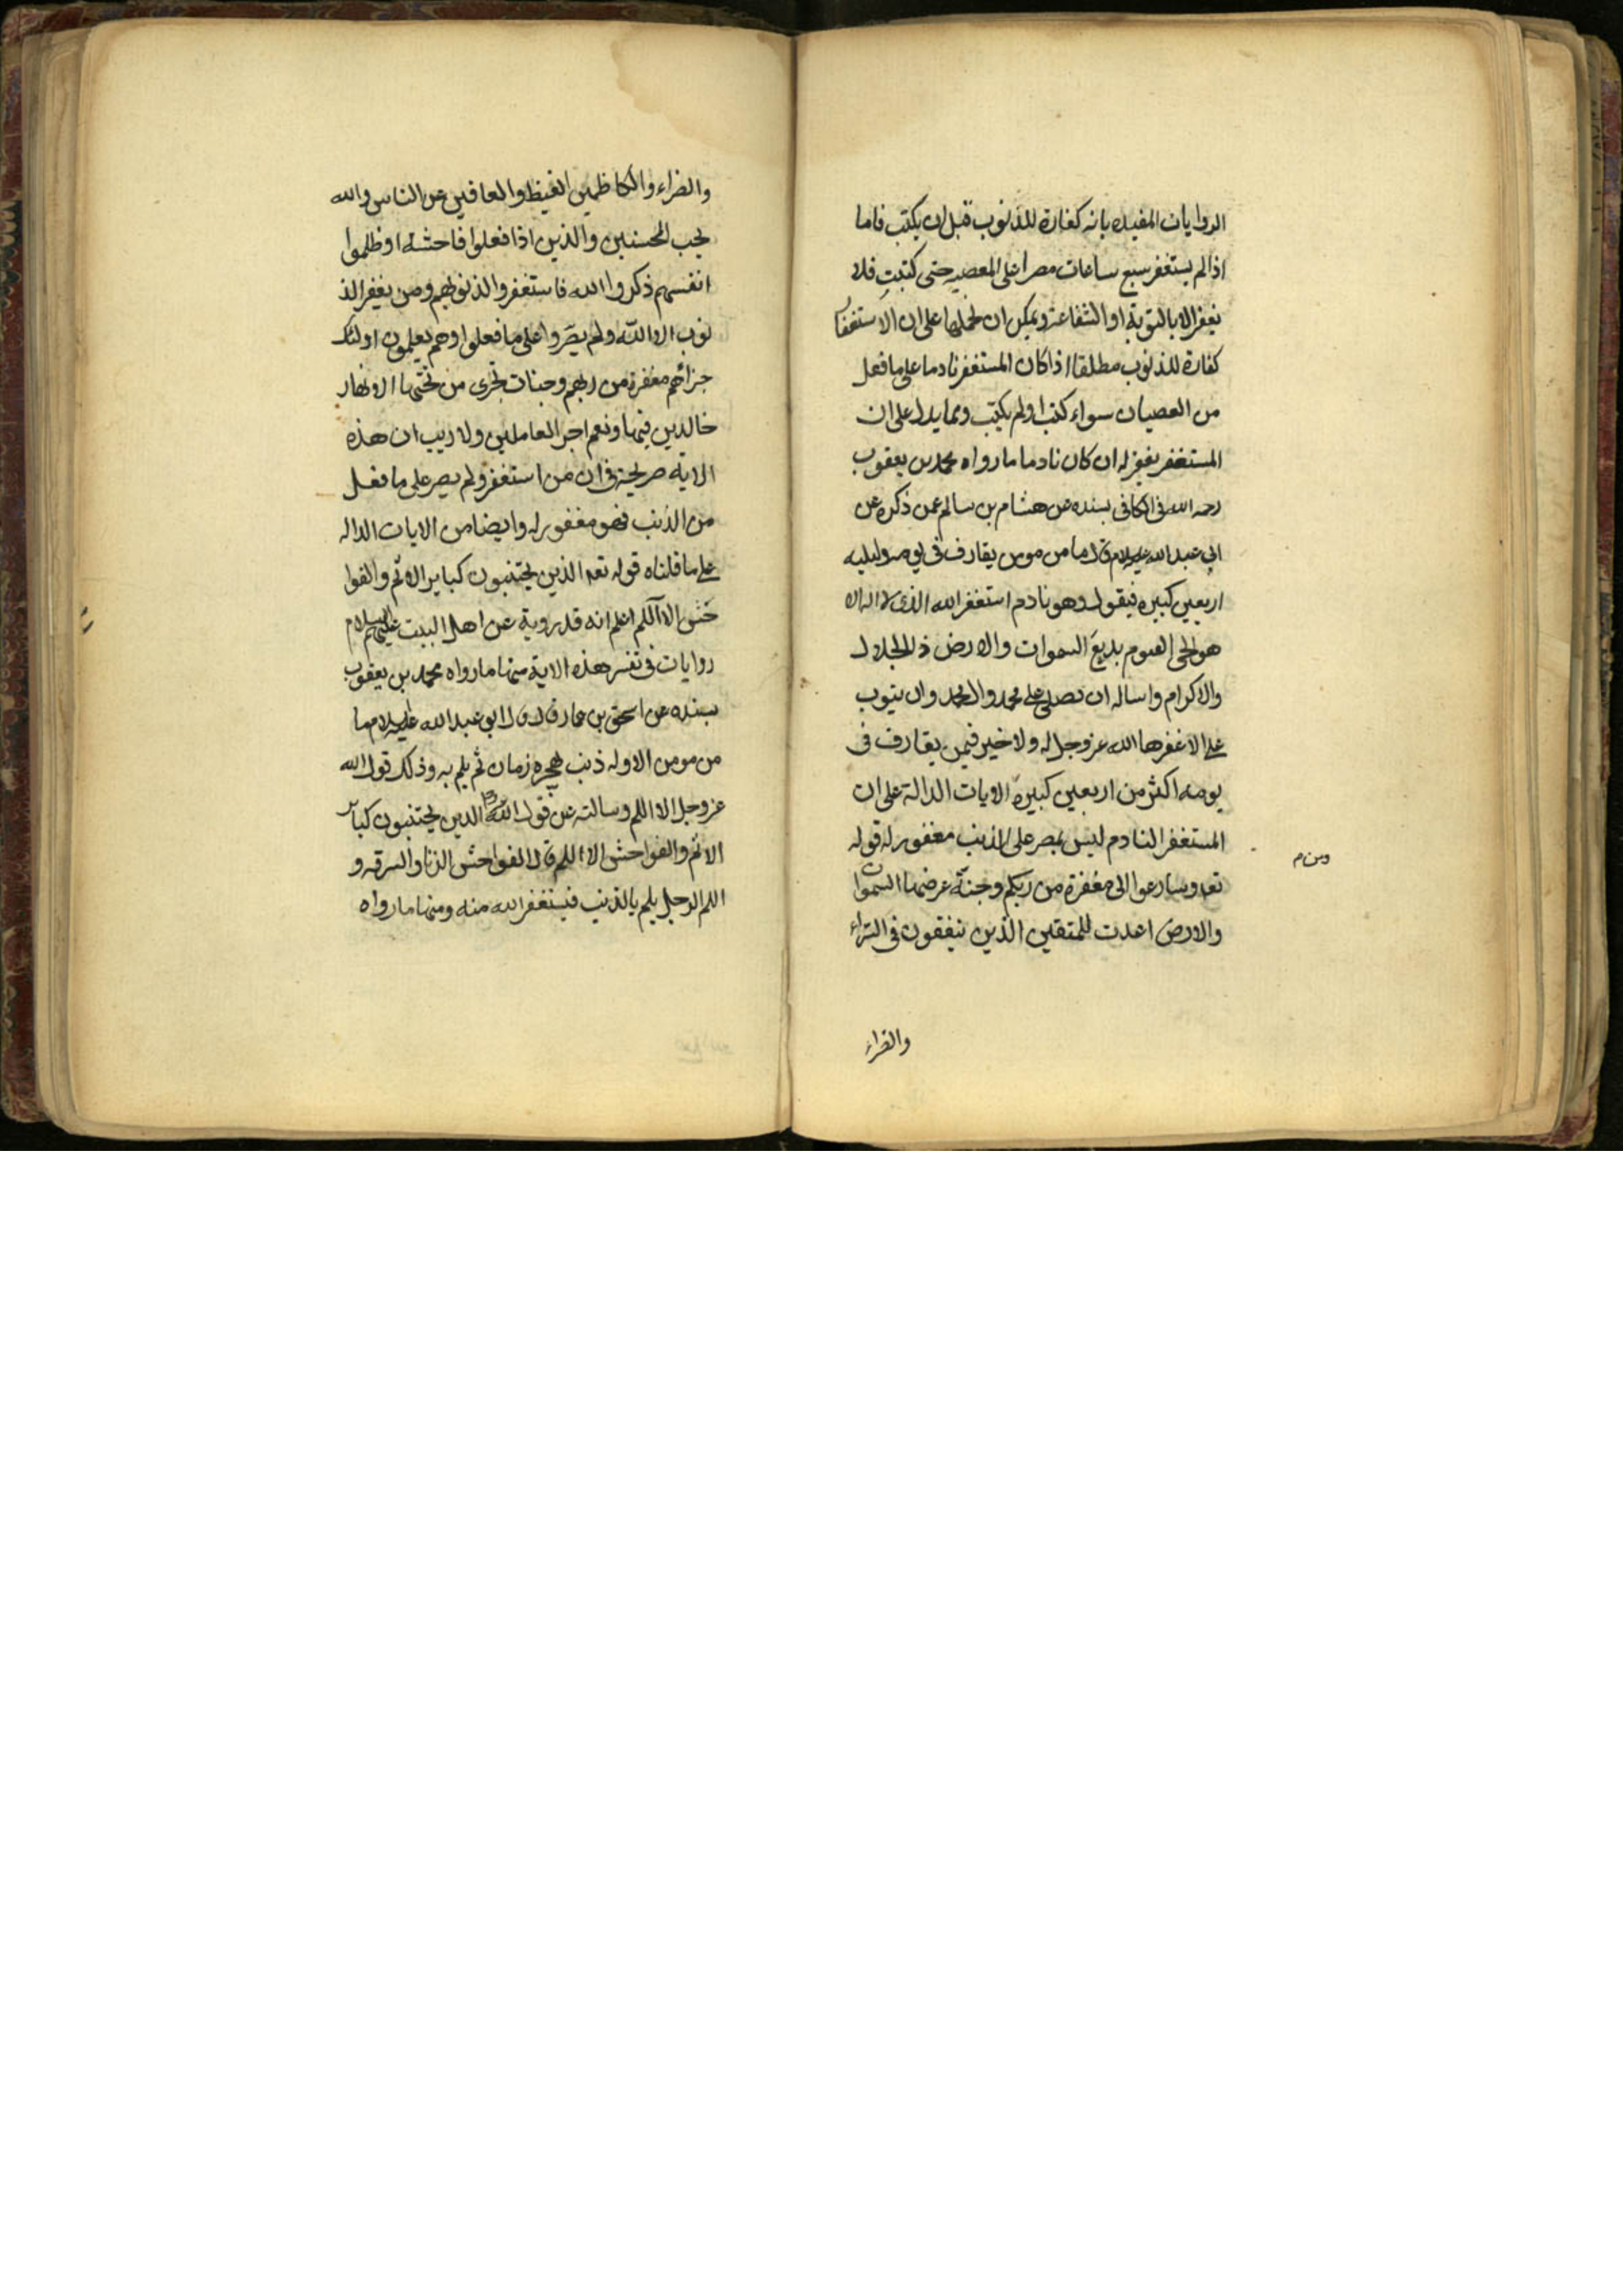 الروايات المفيده بانه كفارة للذنوب قبل ان يكتب فاما
اذا لم يستغفر سبع ساعات مصرا على المعصيه حتى كتبت فلا
يغفر الا بالتوبة او الشفاعة ويمكن ان نحملها على ان الاستغفا
كفارة للذنوب مطلقا اذا كان المستغفر نادما على ما فعل
من العصيان سواء كتب او لم يكتب ومما يدل على ان
المستغفر يغفر له ان كان نادما ما رواه محمد بن يعقوب
رحمه الله فى الكافى بسنده عن هشام بن سالم عمن ذكره عن
ابي عبد الله عليه السلام قال ما من مومن يقارف فى يومه وليليه
اربعين كبيره فيقول وهو نادم استغفر الله الذى لا اله الا
هو الحى القيوم بديع السموات والارض ذ الجلال
والاكرام واساله ان تصلى على محمد وال محمد وان يتوب
على الا غفرها الله عز وجل له ولا خير فيمن يقارف فى
يومه اكثر من اربعين كبيرة الايات الدالة على ان
المستغفر النادم ليس بمصر على الذنب مغفور له قوله
ومن م
تعه وسارعوا الى مغفرة من ربكم وجنة عرضها السموات
والارض اعدت للمتقين الذين ينفقون فى السراء
والضراء
والضراء والكاظمين الغيظ والعافين عن الناس والله
يحب المحسنين والذين اذا فعلوا فاحشة او ظلموا
انفسهم ذكروا الله فاستغفروا لذنوبهم ومن يغفر الذ
نوب الا الله ولم يصروا على ما فعلوا وهم يعلمون اولئك
جزائهم مغفرة من ربهم وجنات تجرى من تحتها الانهار
خالدين فيها ونعم اجر العاملين ولا ريب ان هذه
الاية صريحة فى ان من استغفر ولم يصر على ما فعل
من الذنب فهو مغفور له وايضا من الايات الداله
على ما قلناه قوله تعه الذين يجتنبون كباير الاثم والفوا
حش الا اللمم اعلم انه قد روية عن اهل البيت عليهم السلام
روايات فى تفسر هذه الاية منها ما رواه محمد بن يعقوب
بسنده عن اسحق بن عمار قال قال ابو عبد الله عليه السلام ما
من مومن الا وله ذنب يهجره زمان ثم يلم به وذلك قول الله
عز وجل الا اللمم وسالته عن قول الله الذين يجتنبون كبائر
الاثم والفواحش الا اللمم قال الفواحش الزنا والسرقه و
اللمم الرجل يلم بالذنب فيستغفر الله منه ومنها ما رواه